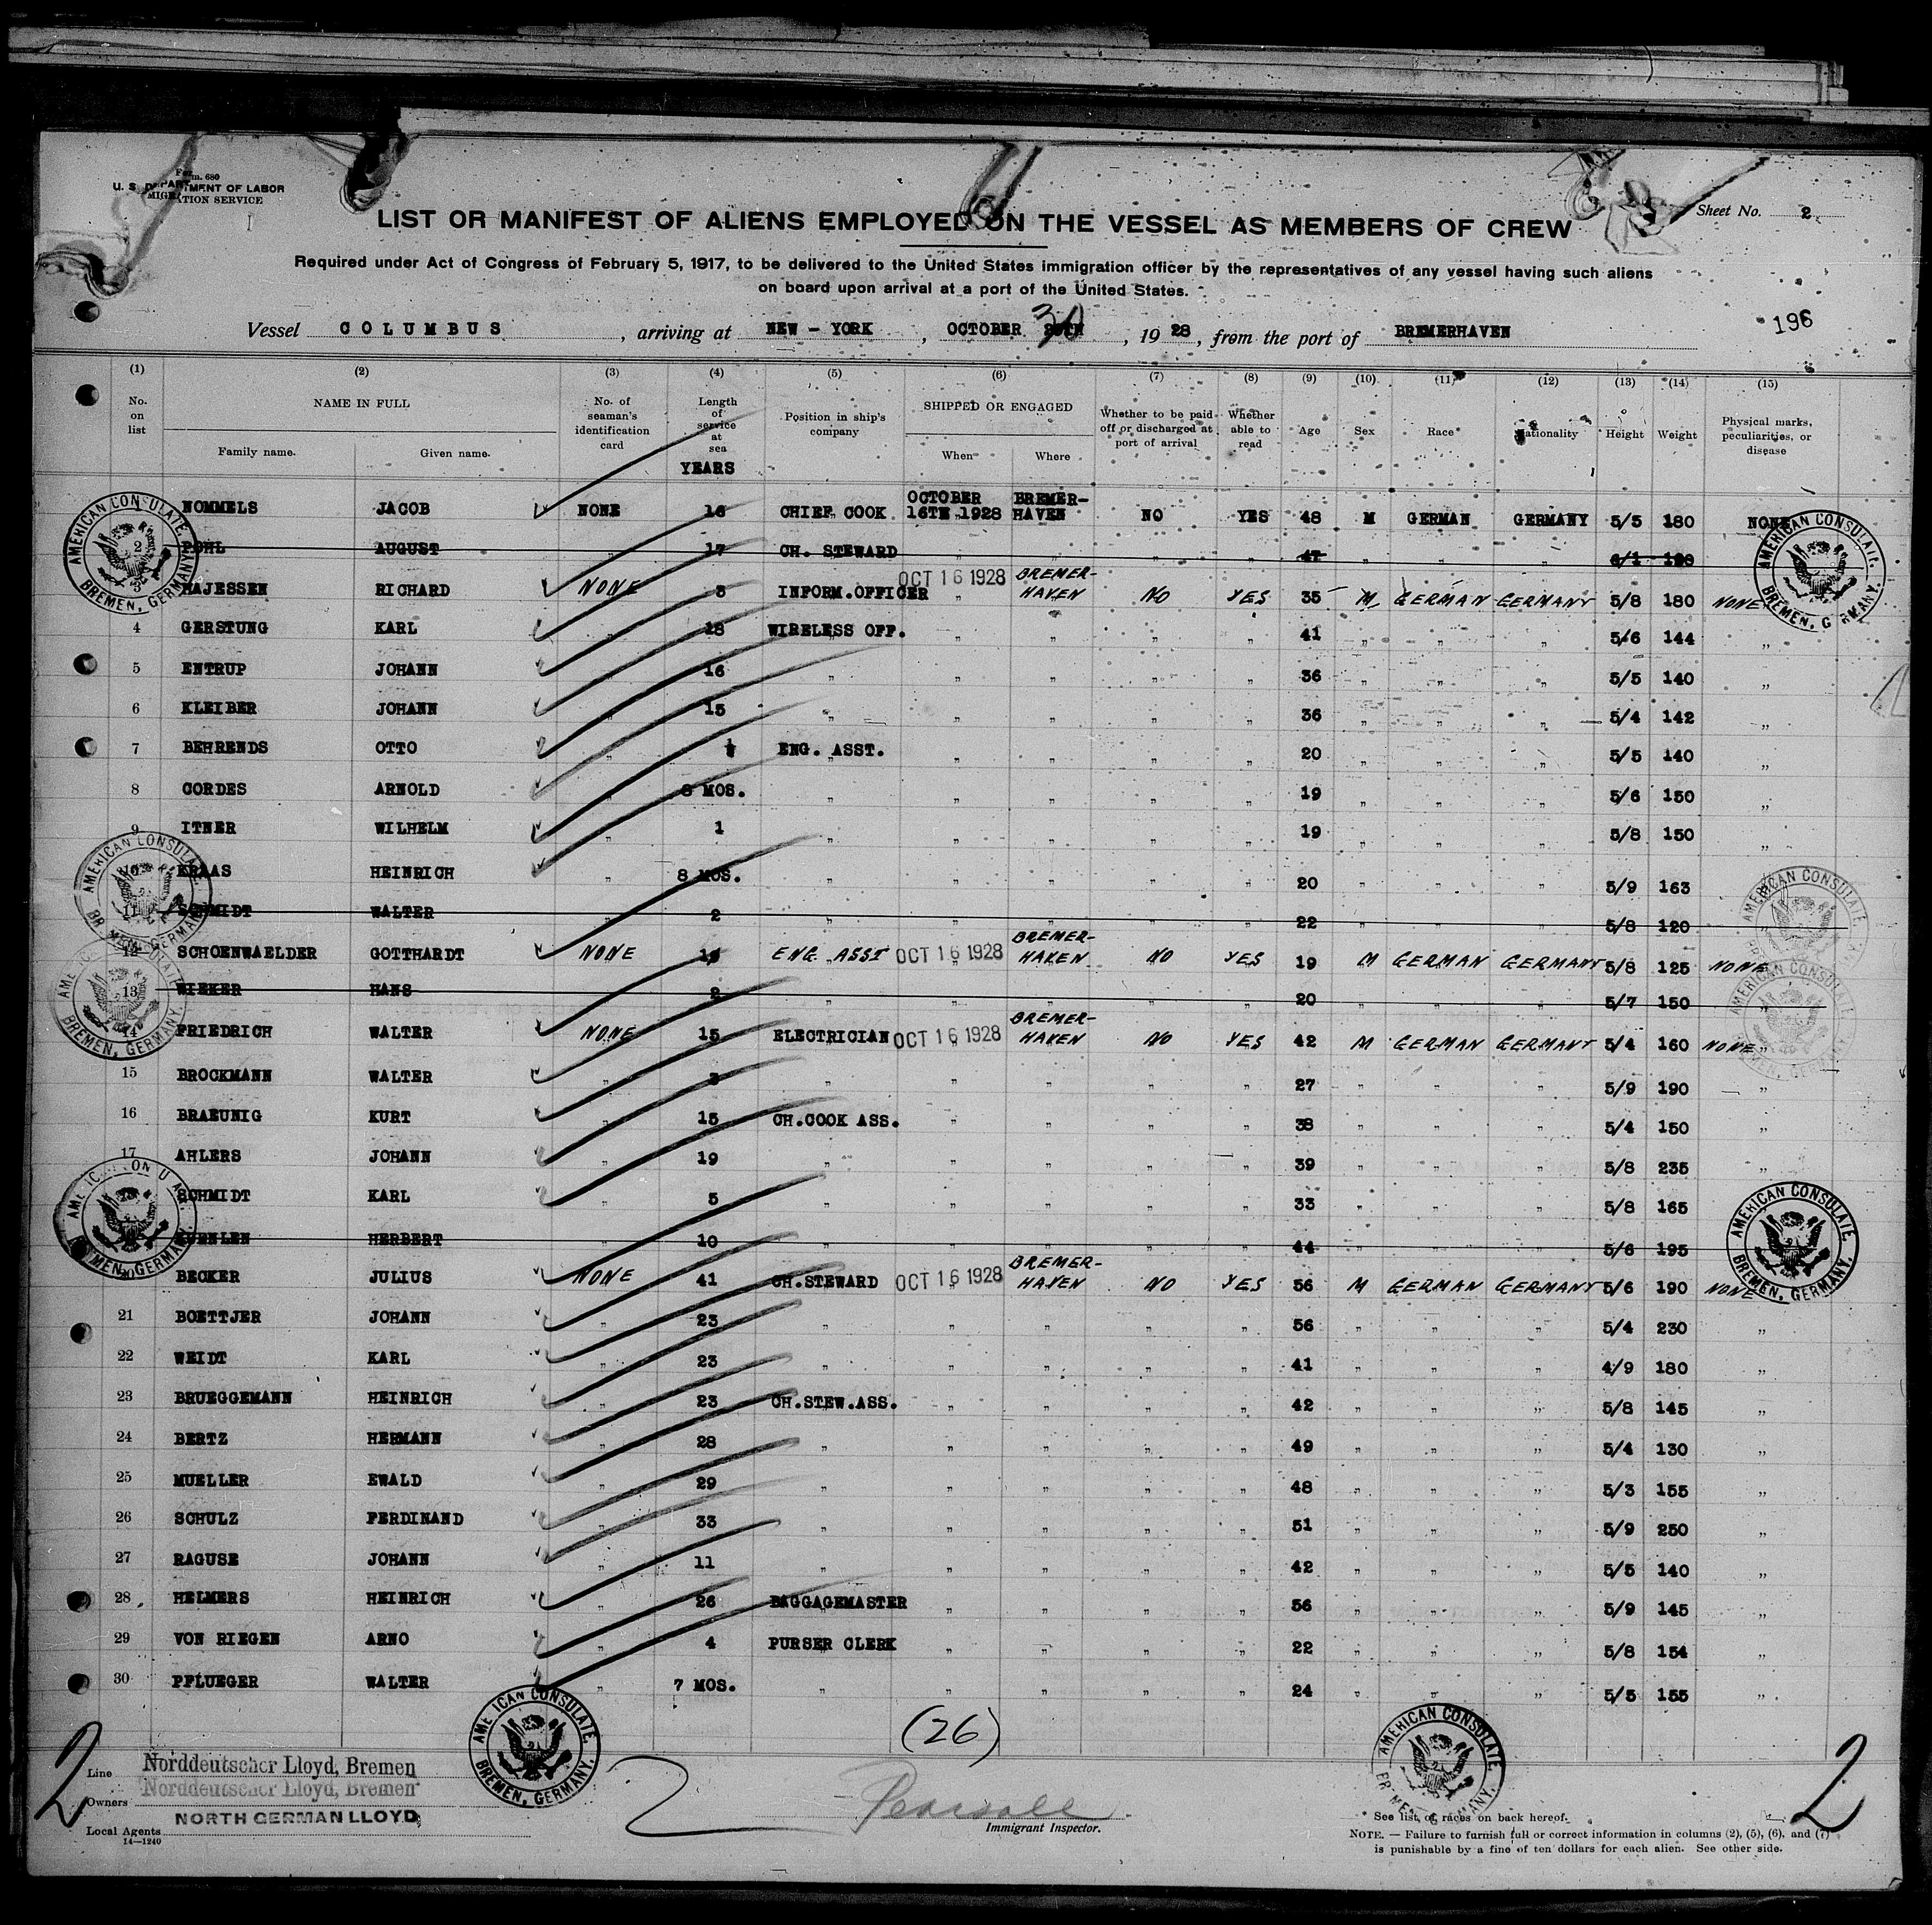 Form. 680
U. S. DEPARTMENT OF LABOR
IMMIGRATION SERVICE
LIST OR MANIFEST OF ALIENS EMPLOYED ON THE VESSEL AS MEMBERS OF CREW
Sheet No. 2
Required under Act of Congress of February 5, 1917, to be delivered to the United States immigration officer by the representatives of any vessel having such aliens
on board upon arrival at a port of the United States.
Vessel COLUMBUS, arriving at NEW - YORK, OCTOBER 30, 1928, from the port of BREMERHAVEN
196
(1) (2) (3) (4) (5) (6) (7) (8) (9) (10) (11) (12) (13) (14) (15)
No. on list
NAME IN FULL
Family name. Given name.
No. of seaman's identification card
Length of service at sea
YEARS
Position in ship's company
SHIPPED OR ENGAGED
When Where
Whether to be paid off or discharged at port of arrival
Whether able to read
Age
Sex
Race*
Nationality
Height
Weight
Physical marks, peculiarities, or disease
NOMMELS JACOB NONE 16 CHIEF COOK OCTOBER 16TH 1928 BREMER-HAVEN NO YES 48 M GERMAN GERMANY 5/5 180 NONE
2 POHL AUGUST " 17 CH. STEWARD " " " " 47 " " " 6/1 198
3 HAJESSEN RICHARD NONE 5 INFORM.OFFICER OCT 16 1928 BREMER-HAVEN NO YES 35 M GERMAN GERMANY 5/8 180 NONE
4 GERSTUNG KARL " 18 WIRELESS OFF. " " " " 41 " " " 5/6 144 "
5 ENTRUP JOHANN " 16 " " " " " 36 " " " 5/5 140 "
6 KLEIBER JOHANN " 15 " " " " " 36 " " " 5/4 142 "
7 BEHRENDS OTTO " ENG. ASST. " " " " 20 " " " 5/5 140 "
8 CORDES ARNOLD " 8 MOS. " " " " " 19 " " " 5/6 150 "
9 ITNER WILHELM " 1 " " " " " 19 " " " 5/8 150 "
10 KRAAS HEINRICH " 8 MOS. " " " " " 20 " " " 5/9 163 "
11 SCHMIDT WALTER " 2 " " " " " 22 " " " 5/8 120 "
12 SCHOENWAELDER GOTTHARDT NONE ENG. ASST OCT 16 1928 BREMER-HAVEN NO YES 19 M GERMAN GERMANY 5/8 125 NONE
13 WIEKER HANS " 2 " " " " " 20 " " " 5/7 150 "
14 FRIEDRICH WALTER NONE 15 ELECTRICIAN OCT 16 1928 BREMER-HAVEN NO YES 42 M GERMAN GERMANY 5/4 160 NONE
15 BROCKMANN WALTER " 3 " " " " " 27 " " " 5/9 190 "
16 BRAEUNIG KURT " 15 CH.COOK ASS. " " " " 38 " " " 5/4 150 "
17 AHLERS JOHANN " 19 " " " " " 39 " " " 5/8 235 "
SCHMIDT KARL " 5 " " " " " 33 " " " 5/8 165 "
KUEHLEN HERBERT " 10 " " " " " 44 " " " 5/6 195 "
20 BECKER JULIUS NONE 41 CH.STEWARD OCT 16 1928 BREMER-HAVEN NO YES 56 M GERMAN GERMANY 5/6 190 NONE
21 BOETTJER JOHANN " 23 " " " " " 56 " " " 5/4 230 "
22 WEIDT KARL " 23 " " " " " 41 " " " 4/9 180 "
23 BRUEGGEMANN HEINRICH " 23 CH.STEW.ASS. " " " " 42 " " " 5/8 145 "
24 BERTZ HERMANN " 28 " " " " " 49 " " " 5/4 130 "
25 MUELLER EWALD " 29 " " " " " 48 " " " 5/3 155 "
26 SCHULZ FERDINAND " 33 " " " " " 51 " " " 5/9 250 "
27 RAGUSE JOHANN " 11 " " " " " 42 " " " 5/5 140 "
28 HELMERS HEINRICH " 26 BAGGAGEMASTER " " " " 56 " " " 5/9 145 "
29 VON RIEGEN ARNO " 4 PURSER CLERK " " " " 22 " " " 5/8 154 "
30 PFLUEGER WALTER " 7 MOS. " " " " " 24 " " " 5/5 155 "
AMERICAN CONSULATE. BREMEN, GERMANY.
AMERICAN CONSULATE. BREMEN, GERMANY.
AMERICAN CONSULATE. BREMEN, GERMANY.
AMERICAN CONSULATE. BREMEN, GERMANY.
AMERICAN CONSULATE. BREMEN, GERMANY.
AMERICAN CONSULATE. BREMEN, GERMANY.
AMERICAN CONSULATE. BREMEN, GERMANY.
AMERICAN CONSULATE. BREMEN, GERMANY.
AMERICAN CONSULATE. BREMEN, GERMANY.
AMERICAN CONSULATE. BREMEN, GERMANY.
(26)
2
2
2
Line Norddeutscher Lloyd, Bremen
Owners Norddeutscher Lloyd, Bremen
Local Agents NORTH GERMAN LLOYD,
14—1240
Pearsall
Immigrant Inspector.
* See list of races on back hereof.
NOTE. — Failure to furnish full or correct information in columns (2), (5), (6), and (7)
is punishable by a fine of ten dollars for each alien. See other side.